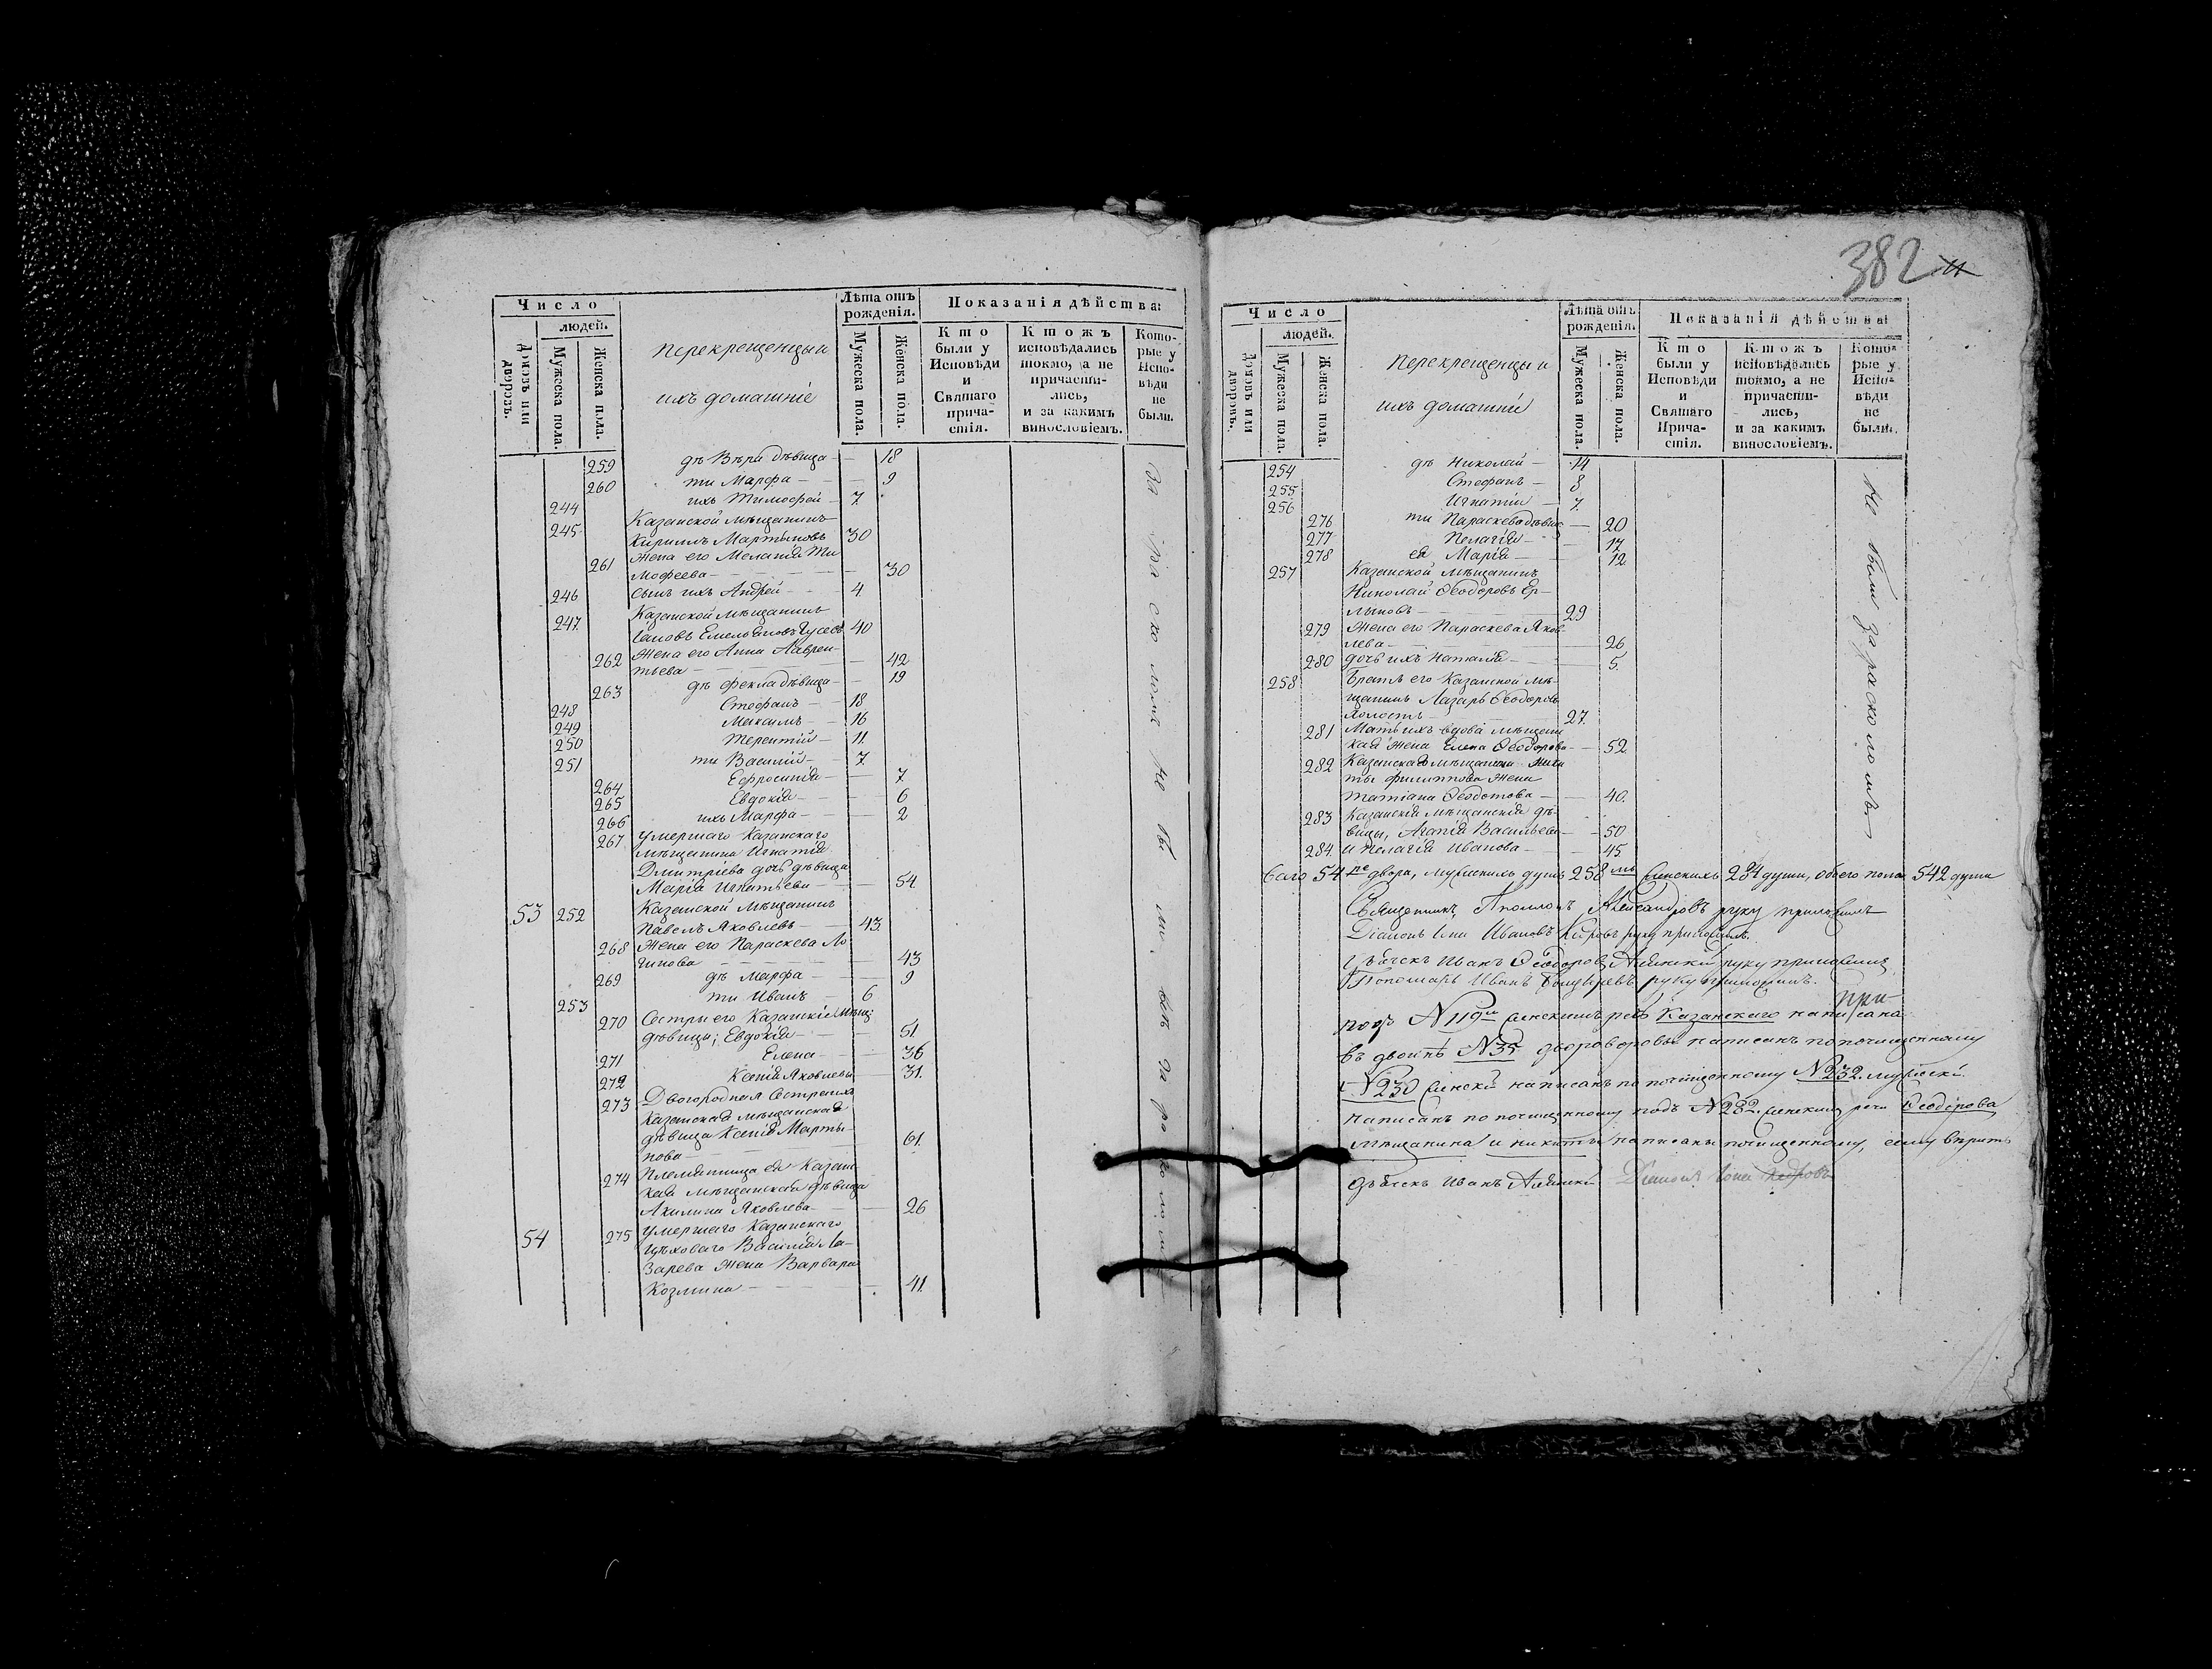 382
Число
людей.
Домовъ или дворовъ.
Мужеска пола.
Женска пола.
Перекрещенцы и
ихъ домашніе
Лѣта отъ
рожденія.
Мужеска пола.
Женска пола.
Показанія дѣйства:
Кто
были у
Исповѣди
и
Святаго
прича-
стія.
Ктожъ
исповѣдались
токмо, а не
причасти-
лись,
и за какимъ
винословіемъ.
Кото-
рые у
Испо-
вѣди
не
были.
259 дѣ Вѣра дѣвица — 18
260 ти Марфа — 9
244 ихъ Тимофей — 7
Казанской мѣщанинъ
245 Кириллъ Мартыновъ 30
Жена его Меланія Ти
261 мофеева — 30
246 сынъ ихъ Андрей — 4
Казанской мѣщанинъ
247 Емельяновъ Гусевъ 40
Жена его Анна Лаврен
262 тьева — 42
263 дѣ Фекла дѣвица — 19
248 Стефанъ — 18
249 Максимъ — 16
250 Терентій — 11
251 ти Василій — 7
264 Ефросинія — 7
265 Евдокія — 6
266 ихъ Марфа — 2
267 Умершаго Казанскаго
мѣщанина Игнатія
Дмитріева дочь дѣвица
Марія Игнатьева — 54
53 252 Казанской мѣщанинъ
Павелъ Яковлевъ — 43
268 Жена его Параскева Ло
гинова — 43
269 дѣ Марфа — 9
253 ти Иванъ — 6
270 Сестры его Казанскіе мѣщ:
дѣвицы; Евдокія — 51
271 Елена — 36
272 Ксенія Яковлевы 31
273 Двоюродная сестра ихъ
Казанская мѣщанская
дѣвица Ксенія Марты
нова — 61
274 Племянница ея Казанс
кая мѣщанская дѣвица
Акилина Яковлева — 26
54 275 Умершаго Казанскаго
цѣховаго Василія Ла-
зарева жена Варвара
Козмина — 41
За расколомъ не бы
ли
Число
людей.
Домовъ или дворовъ.
Мужеска пола.
Женска пола.
Перекрещенцы и
ихъ домашніе
Лѣта отъ
рожденія.
Мужеска пола.
Женска пола.
Показанія дѣйства:
Кто
были у
Исповѣди
и
Святаго
Прича-
стія.
Ктожъ
исповѣдались
токмо, а не
причасти-
лись,
и за какимъ
винословіемъ.
Кото-
рые у
Испо-
вѣди
не
были.
254 дѣ Николай — 14
255 Стефанъ — 8
256 Игнатій — 7
276 ти Параскева дѣвиц — 20
277 Пелагія — 17
278 ея Марія — 12
257 Казанской мѣщанинъ
Николай Ѳеодоровъ Ер-
мыковъ — 29
279 Жена его Параскева Яков
лева — 26
280 дочь ихъ Наталія — 5
258 Братъ его Казанской мѣ-
щанинъ Лазарь Ѳеодоровъ
холостъ — 27
281 Мать ихъ вдова мѣщанс
кая жена Елена Ѳеодорова — 52
282 Казанскаго мѣщанина Ники
ты Филиппова жена
Татіана Ѳеодотова — 40
283 Казанскія мѣщанскія дѣ-
вицы, Агапія Васильева — 50
284 и Пелагія Иванова — 45
Не были за расколомъ
Сего 54 двора, мужескихъ душъ 258 женскихъ 284 души, обоего пола 542 души
Священникъ Аполлонъ Александровъ руку приложилъ
Діаконъ Іона Ивановъ руку приложилъ.
Дьячекъ Иванъ Ѳеодоровъ руку приложилъ
Пономарь Иванъ руку приложилъ.
подъ №119м женскимъ Казанскаго написана
въ двоитѣ №35 написанъ по почищенному
№230 женскій написанъ по почищенному №232. мужескій
написанъ по почищенному подъ №282. женскимъ речь Ѳеодорова
мѣщанина и никиты написаны почищенному, сему вѣрить
дьячекъ Иванъ Діаконъ Іона